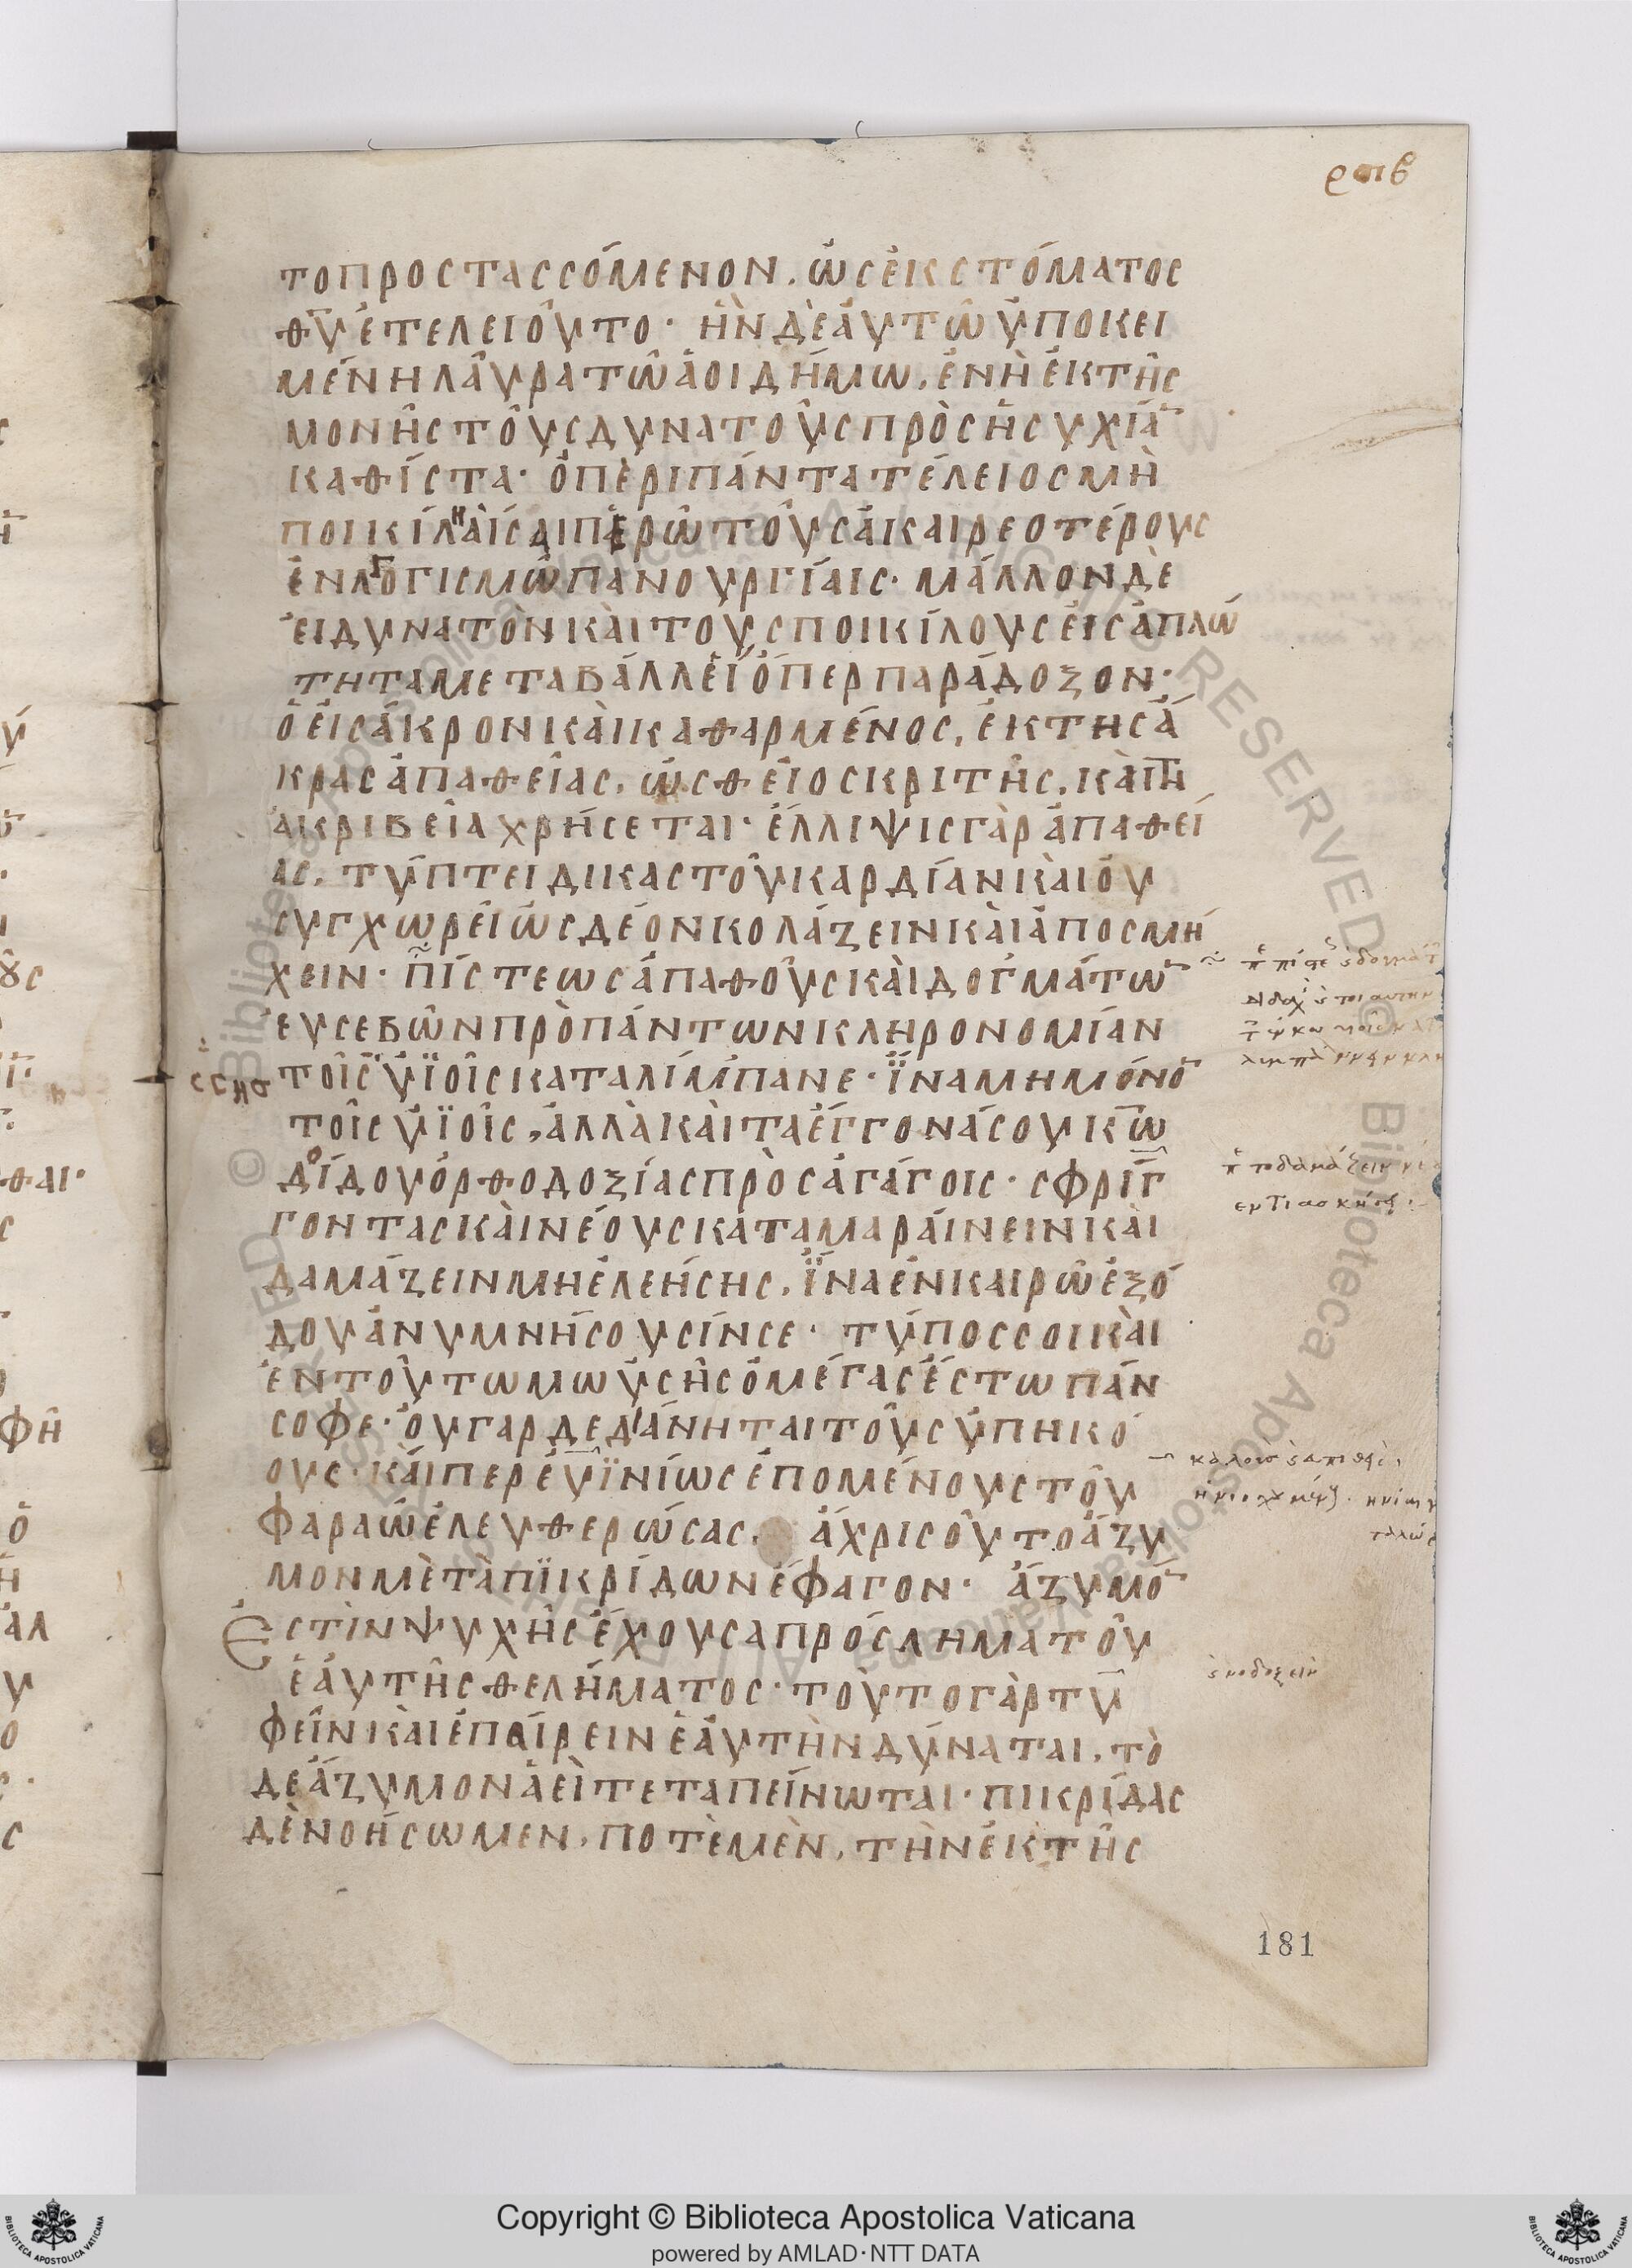 ρπϛ
τοπροστασσόμενον. ὡσἐκστόματος
θ̅υ̅ἐτελειοῦτο· ἦνδὲἀυτῶὑποκει
μένηλάυρατῶἀοιδήμω, ἐνῆἐκτῆς
μονῆςτοὺςδυνατοὺςπρὸςἡσυχίᾱ
καθίστα· ὁπερὶπάντατέλειοςμὴ
ποικίληἀίσδιπερῶτοὺςἀκαιρεοτέρους
ἐνλογισμῶπανουργίαις· μᾶλλονδὲ
ἐιδυνατὸνκαὶτοὺςποικίλουςἐισἁπλώ
τηταμεταβάλλειὅπερπαράδοξον·
ὁἐισἄκρονκαὶκαθαρμένος, ἐκτηςἄ
κραςἀπαθείας, ὡςθεῖοςκριτῆς, καὶτῆ
ἀκριβεῖαχρήσεται· ἔλλιψιςγὰρἀπαθεί
ας, τύπτειδικαστοῦκαρδίανκαὶοὐ
συγχωρεῖὡςδέονκολάζεινκαὶἀποσμή
χειν· πίστεωςἀπαθοῦςκαὶδογμάτω̅
ἐυσεβῶνπρὸπάντωνκληρονομίαν
τοῖςὑϊοῖςκαταλίμπανε· ἵναμημόνο̅
τοῖςὑϊοῖς, ἀλλὰκαὶταἔγγονάσουκω̅
δίδουὀρθοδοξίαςπρὸςἀγάγοις· σφριγ
γονταςκαὶνέουςκαταμαράινεινκαὶ
δαμάζεινμηἐλεήσης, ἵναἐνκαιρῶἐξό
δουἀνυμνήσουσίνσε· τύποςσοικαὶ
ἐντούτωμωὑσῆςὁμέγαςἔστωπάν
σοφε· ὀυγαρδεδιάνηταιτοὺςὑπηκό
ους· καίπερἐυϊνίωςἑπομένουςτοῦ
φαραὼἐλευθερώσας, ἄχριςοῦτοἄζυ
μονμὲτὰπϊκρίδωνέφαγον· ἄζυμό̅
Ἐστὶνψυχῆςἔχουσαπρόσλημματοῦ
ἑἀυτῆςθελήματος· τοῦτογὰρτυ
φεῖνκαὶἐπαίρεινἑἀυτὴνδύναται, τὸ
δεἄζυμονἀεὶτεταπείνωται· πικρίδας
δὲνοήσωμεν, ποτὲμὲν, τὴνἐκτῆς
181
Copyright © Biblioteca Apostolica Vaticana
powered by AMLAD·NTT DATA